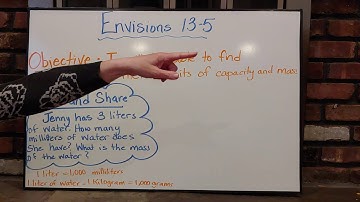 Envisions 13-5
Objective: I to find
units of capacity and mass
and Share
Jenny has 3 liters
of water. How many
milliliters of water does
she have? What is the mass
of the water?
1 liter = 1,000 milliliters
1 liter of water = 1 kilogram = 1,000 grams